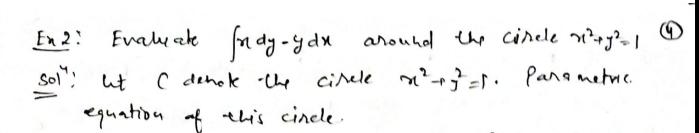 Ex 2: Evaluate ∫x dy - y dx around the circle x²+y²=1 ④
Solⁿ: Let C denote the circle x²+y²=1. Parametric
equation of this circle.